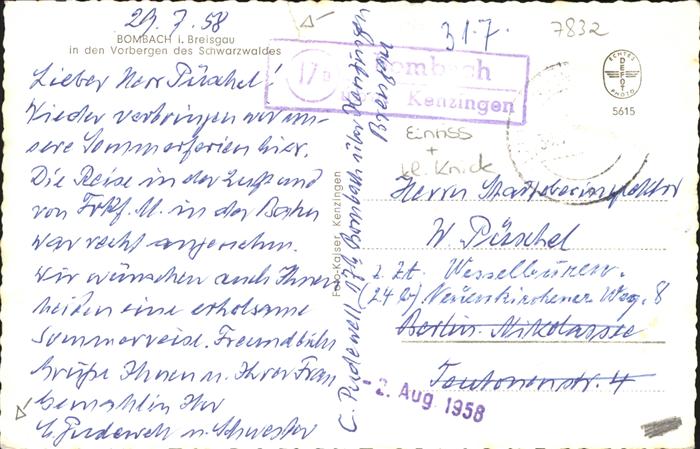 29.7.58
BOMBACH i. Breisgau
in den Vorbergen des Schwarzwaldes
Lieber Herr Püschel!
Wieder verbringen wir un-
sere Sommerferien hier.
Die Reise in der Luft und
von Frkf. M. in der Bahn
war recht angenehm.
Wir wünschen auch Ihnen
beiden eine erholsame
Sommerreise. Freundliche
Grüße Ihnen u. Ihrer Frau
Gemahlin Ihr
u. Schwester
C. Pudewell, 17b Bombach über Kenzingen
Breisgau
Foto-Kaiser, Kenzingen
17b
Bombach
Kenzingen
31.7.
7832
ECHTES
DEFOT
PHOTO
5615
Einriss
+
kl. Knick
Herrn Stadtoberinspektor
W. Püschel
z. Zt. Wesselburen.
(24b) Neuenkirchener Weg. 8
Berlin-Nikolassee
Teutonenstr. 4
- 2. Aug. 1958